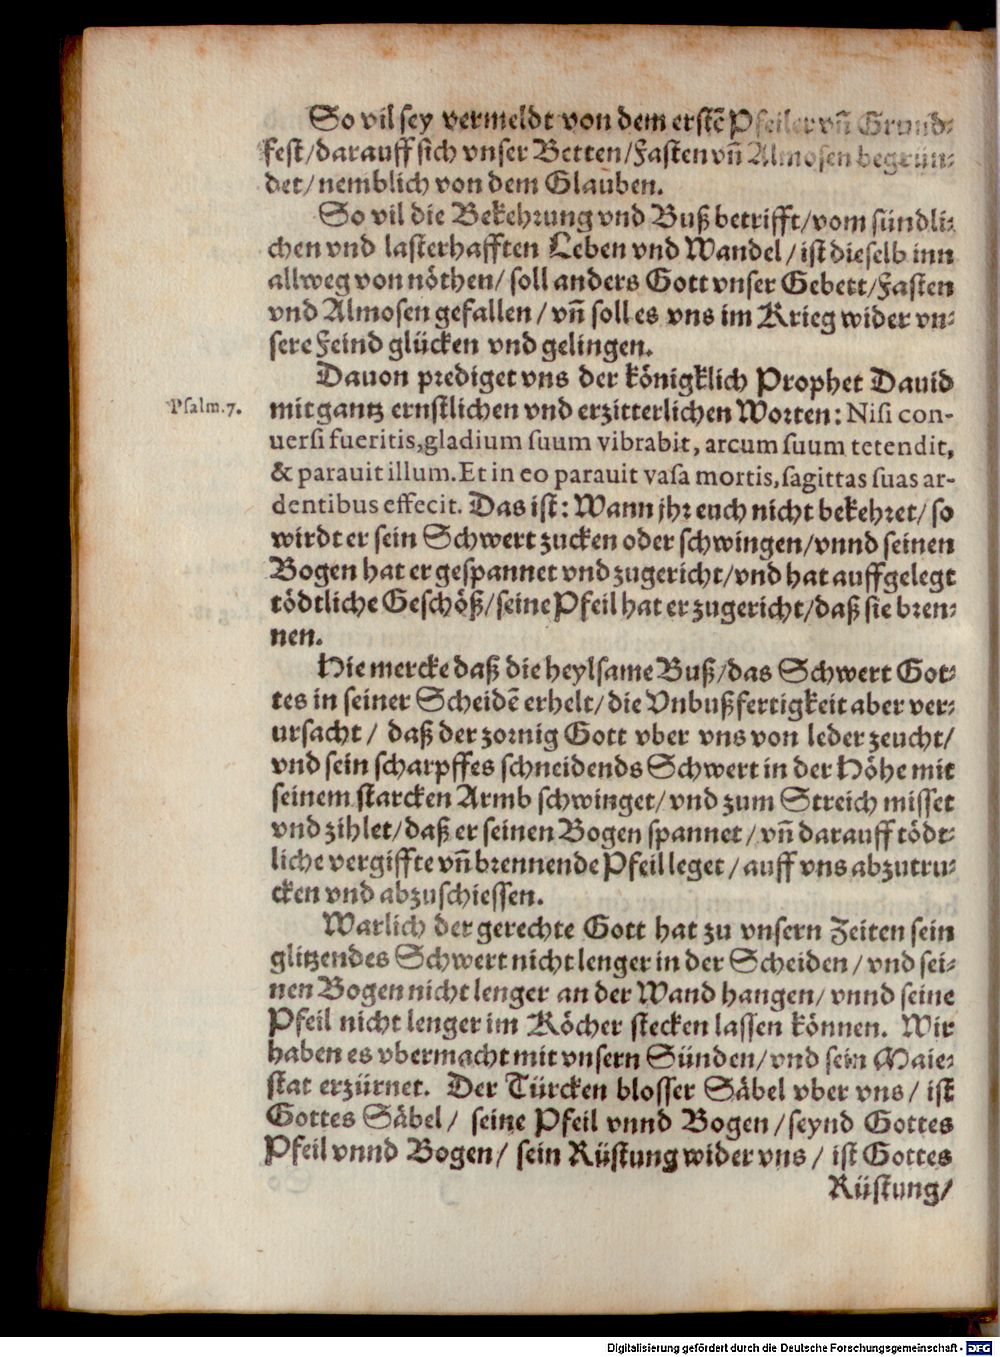 So vil sey vermeldt von dem erstē Pfeiler vñ Grund-
fest/darauff sich vnser Betten/Fasten vñ Almosen begrün-
det/nemblich von dem Glauben.
So vil die Bekehrung vnd Buß betrifft/vom sündli-
chen vnd lasterhafften Leben vnd Wandel/ist dieselb inn
allweg von nöthen/soll anders Gott vnser Gebett/Fasten
vnd Almosen gefallen/vñ soll es vns im Krieg wider vn-
sere Feind glücken vnd gelingen.
Dauon prediget vns der königklich Prophet Dauid
Psalm.7.
mit gantz ernstlichen vnd erzitterlichen Worten: Nisi con-
uersi fueritis,gladium suum vibrabit, arcum suum tetendit,
& parauit illum. Et in eo parauit vasa mortis, sagittas suas ar-
dentibus effecit. Das ist: Wann jhr euch nicht bekehret/so
wirdt er sein Schwert zucken oder schwingen/vnnd seinen
Bogen hat er gespannet vnd zugericht/vnd hat auffgelegt
tödtliche Geschöß/seine Pfeil hat er zugericht/daß sie bren-
nen.
Hie mercke daß die heylsame Buß/das Schwert Got-
tes in seiner Scheidē erhelt/die Vnbußfertigkeit aber ver-
ursacht/ daß der zornig Gott vber vns von leder zeucht/
vnd sein scharpffes schneidends Schwert in der Höhe mit
seinem starcken Armb schwinget/vnd zum Streich misset
vnd zihlet/daß er seinen Bogen spannet/vñ darauff tödt-
liche vergiffte vñ brennende Pfeil leget/auff vns abzutru-
cken vnd abzuschiessen.
Warlich der gerechte Gott hat zu vnsern Zeiten sein
glitzendes Schwert nicht lenger in der Scheiden/vnd sei-
nen Bogen nicht lenger an der Wand hangen/vnnd seine
Pfeil nicht lenger im Köcher stecken lassen können. Wir
haben es vbermacht mit vnsern Sünden/vnd sein Maie-
stat erzürnet. Der Türcken blosser Säbel vber vns/ ist
Gottes Säbel/ seine Pfeil vnnd Bogen/seynd Gottes
Pfeil vnnd Bogen/ sein Rüstung wider vns/ ist Gottes
Rüstung/
Digitalisierung gefördert durch die Deutsche Forschungsgemeinschaft - DFG